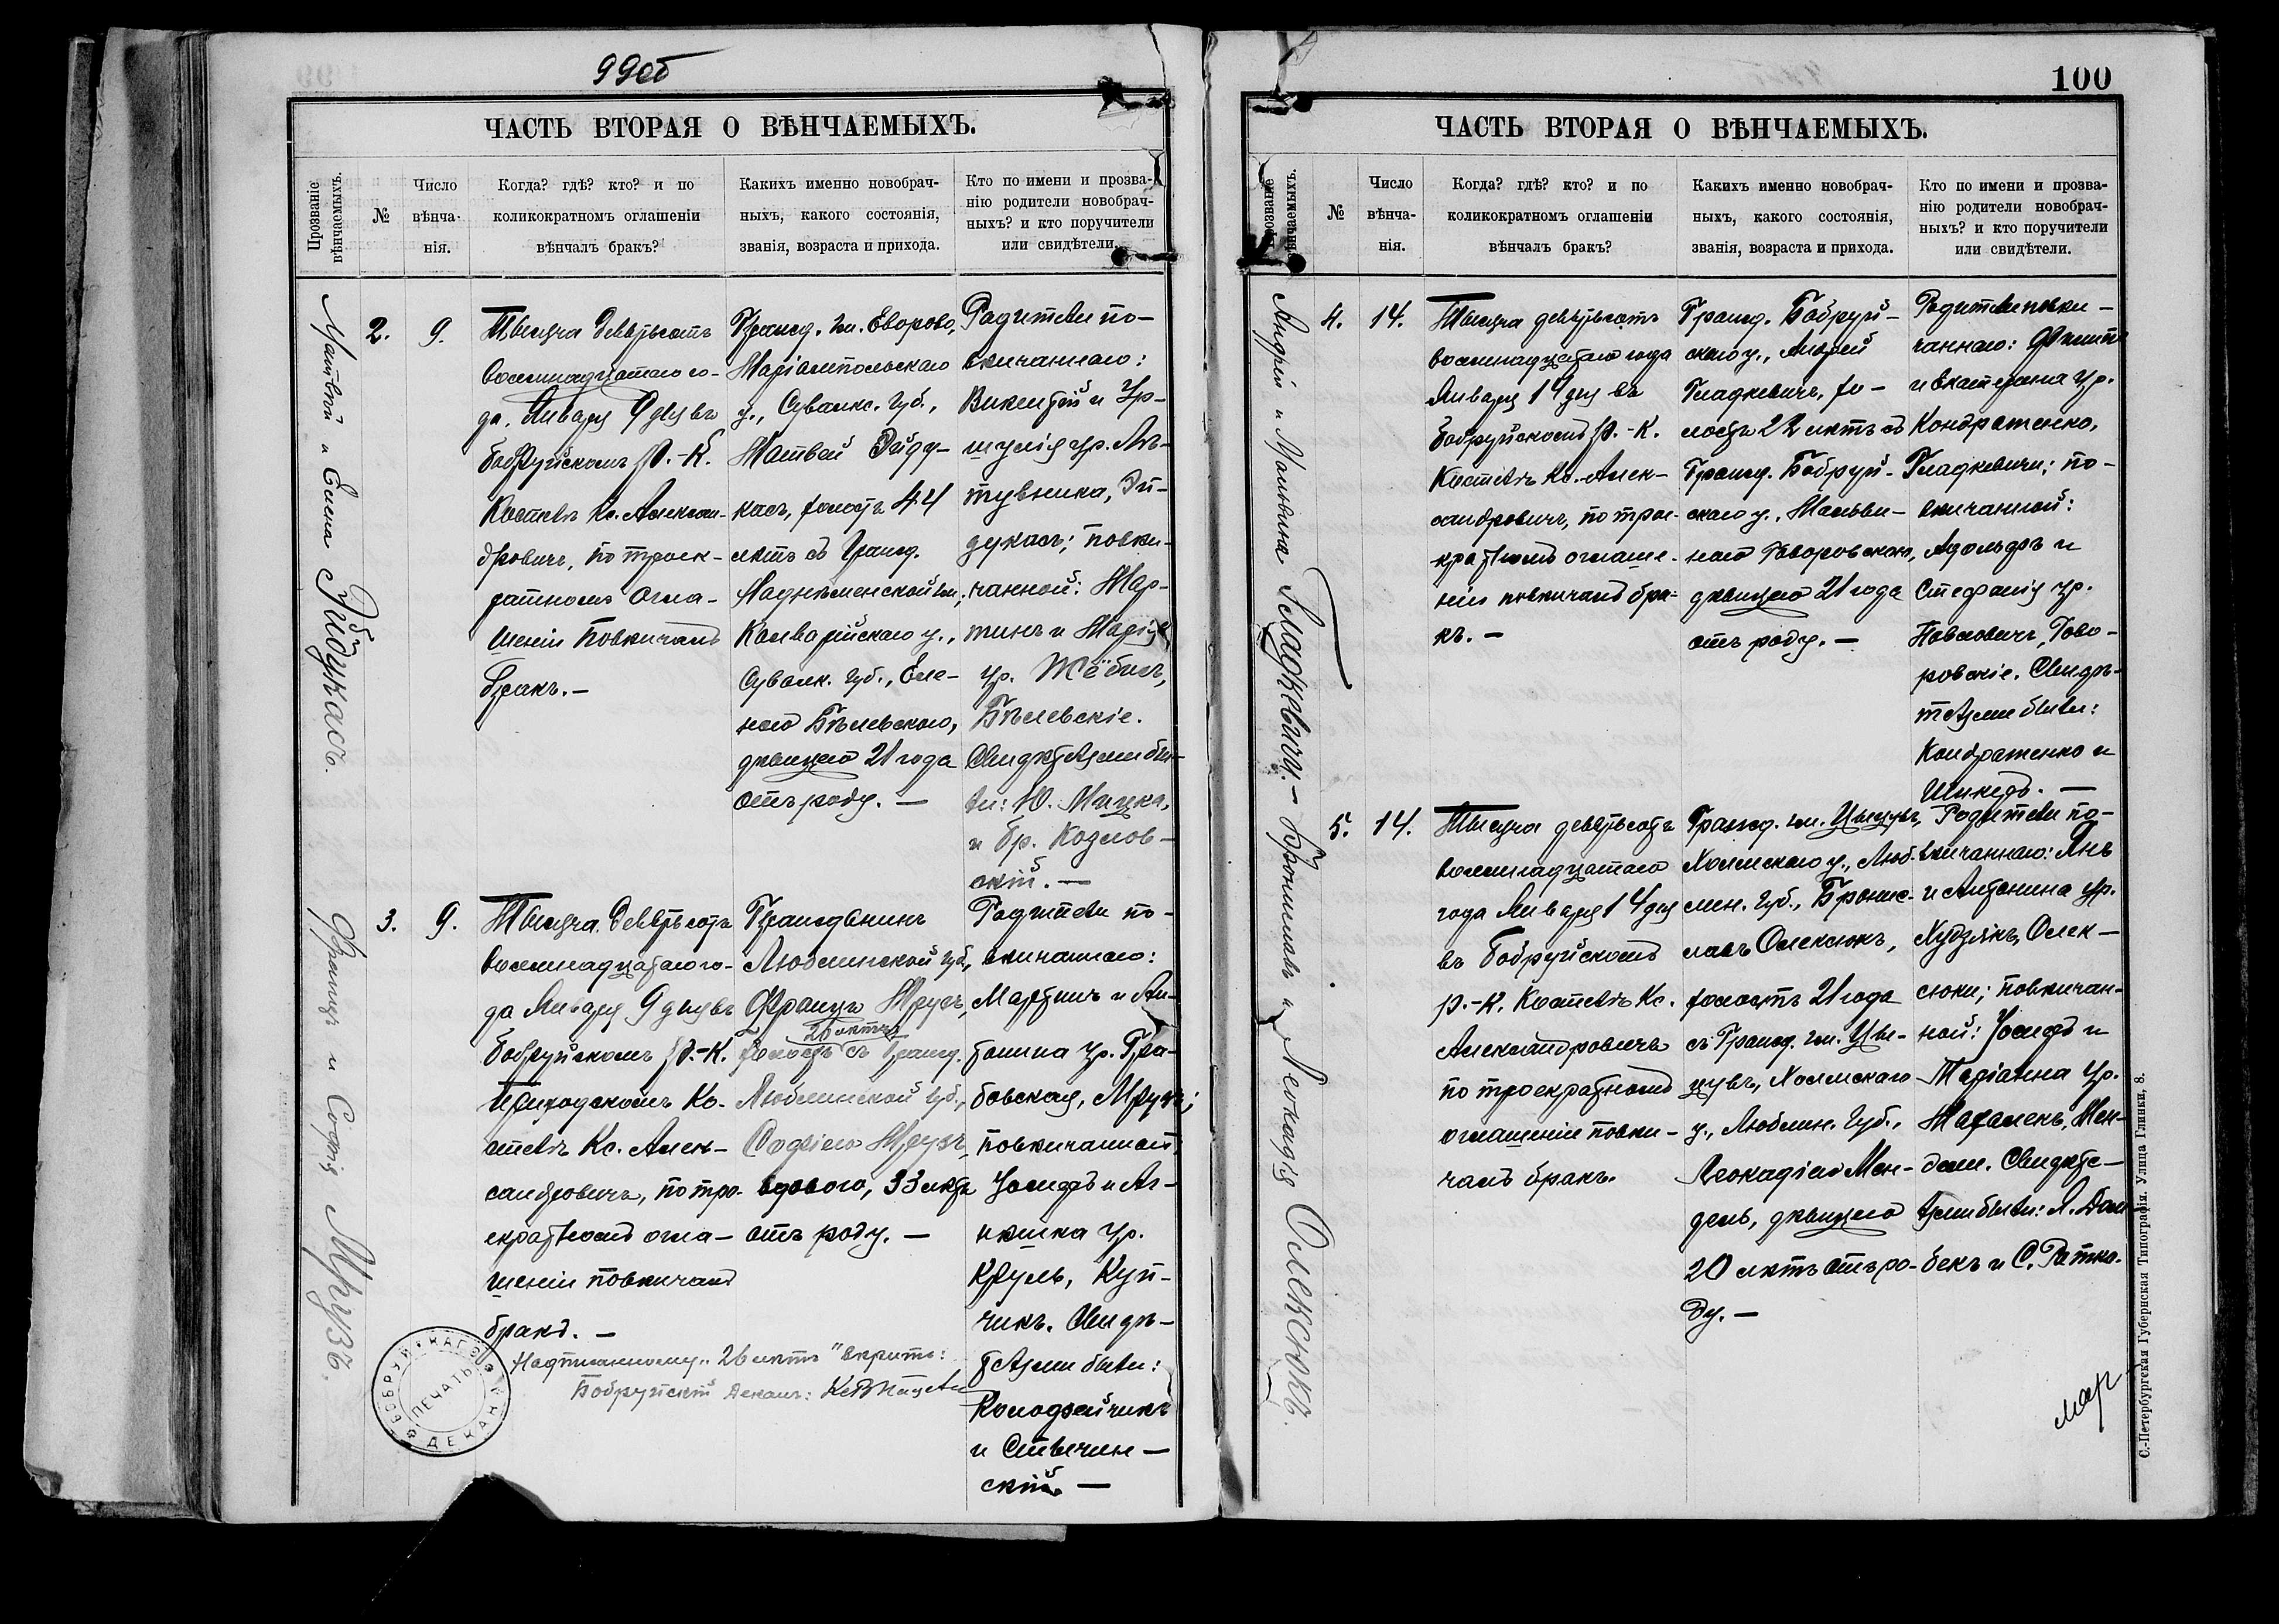 99об
ЧАСТЬ ВТОРАЯ О ВѢНЧАЕМЫХЪ.
Прозваніе вѣнчаемыхъ.
№
Число вѣнча-
нія.
Когда? гдѣ? кто? и по
коликократномъ оглашеніи
вѣнчалъ бракъ?
Какихъ именно новобрач-
ныхъ, какого состоянія,
званія, возраста и прихода.
Кто по имени и прозва-
нію родители новобрач-
ныхъ? и кто поручители
или свидѣтели.
Матвѣй и Елена Эйдукасъ.
2.
9.
Тысяча девятьсотъ
восемнадцатаго го-
да, Января 9 дня въ
Бобруйскомъ Р.-К.
Костелѣ Кс. Алексан-
дровичъ, по троек-
ратномъ огла-
шеніи повѣнчалъ
бракъ. —
Гражд. гм.
Маріампольскаго
у., Сувалкс. Губ.,
Матвей Эйду-
касъ, холостъ 44
лѣтъ съ гражд.
Надняменской гм.,
Кальварійскаго у.,
Сувалк. Губ., Еле-
ною Бѣлевскою,
дѣвицею 21 года
отъ роду. —
Родители по-
вѣнчаннаго:
Викентій и Ур-
шулія ур. Ли-
тувника, Эй-
дукасъ; повѣн-
чанной: Мар-
тинъ и Марія
ур.
Бѣлевскіе.
Свидѣтелями бы-
ли: Ю. Мацка,
и Бр. Козлов-
скій. —
Францъ и Софія Мрузъ.
3.
9.
Тысяча девятьсотъ
восемнадцатаго го-
да Января 9 дня въ
Бобруйскомъ Р.-К.
Приходскомъ Ко-
стелѣ Кс. Алек-
сандровичъ, по тро-
екратномъ огла-
шеніи повѣнчалъ
бракъ. —
Гражданинъ
Люблинской губ.,
Францъ Мрузъ,
26 лѣтъ
холостъ съ гражд.
Люблинской губ.,
Софіею Мрузъ,
вдовою, 33 лѣтъ
отъ роду. —
Родители по-
вѣнчаннаго:
Мартинъ и Ан-
тонина ур. Гра-
бовская, Мрузъ;
повѣнчанной
Іосифъ и Аг-
нѣшка ур.
Круль, Куп-
чикъ. Свидѣ-
телями были:
Колодзейчикъ
и
скій. —
Надписанному „26 лѣтъ" вѣрить:
Бобруйскій Деканъ:
БОБРУЙСКАГО ДЕКАНА
ПЕЧАТЬ
100
ЧАСТЬ ВТОРАЯ О ВѢНЧАЕМЫХЪ.
Прозваніе вѣнчаемыхъ.
№
Число вѣнча-
нія.
Когда? гдѣ? кто? и по
коликократномъ оглашеніи
вѣнчалъ бракъ?
Какихъ именно новобрач-
ныхъ, какого состоянія,
званія, возраста и прихода.
Кто по имени и прозва-
нію родители новобрач-
ныхъ? и кто поручители
или свидѣтели.
Андрей и Мальвина Гладкевичи. —
4.
14.
Тысяча девятьсотъ
восемнадцатаго года
Января 14 дня въ
Бобруйскомъ Р.-К.
Костелѣ Кс. Алек-
сандровичъ, по трое-
кратномъ оглаше-
ніи повѣнчалъ бра-
къ. —
Гражд. Бобруй-
скаго у., Андрей
Гладкевичъ, хо-
лостъ 22 лѣтъ съ
Гражд. Бобруй-
скаго у., Мальви-
ною Говоровскою,
дѣвицею 21 года
отъ роду. —
Родители повѣн-
чаннаго:
и Екатерина ур.
Кондратенко,
Гладкевичи; по-
вѣнчанной:
Адольфъ и
Стефанія ур.
Говo-
ровскіе. Свидѣ-
телями были:
Кондратенко и
Шикедъ. —
Брониславъ и Леокадія Олексюкъ.
5.
14.
Тысяча девятьсотъ
восемнадцатаго
года Января 14 дня
въ Бобруйскомъ
Р.-К. Костелѣ Кс.
Александровичъ
по троекратномъ
оглашеніи повѣн-
чалъ бракъ.
Гражд. гм. Цыцувъ,
Холмскаго у., Люб-
лин. Губ., Бронис-
лавъ Олексюкъ,
холостъ 21 года
съ Гражд. гм. Цы-
цувъ, Холмскаго
у., Люблин. Губ.,
Леокадіею Мен-
дель, дѣвицею
20 лѣтъ отъ ро-
ду. —
Родители по-
вѣнчаннаго: Янъ
и Антонина ур.
Худзикъ, Олек-
сюки; повѣнчан-
ной: Іосифъ и
Маріанна ур.
Мен-
дели. Свидѣте-
лями были: Я. Дом-
бекъ и С. Ратка.
С.-Петербургская Губернская Типографія. Улица Глинки, 8.